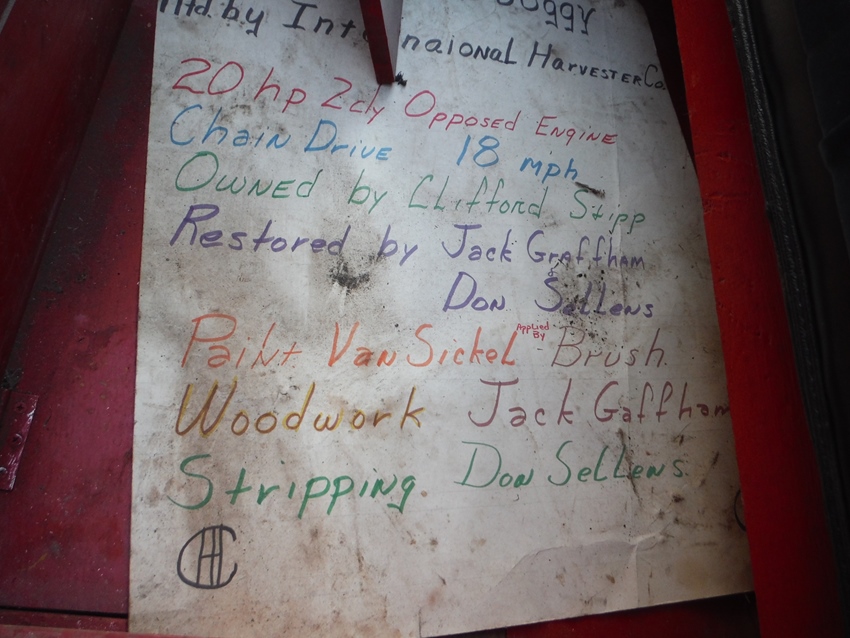 uggy
Mfd.by International Harvester Co.
20 hp 2cly Opposed Engine
Chain Drive 18 mph
Owned by Clifford Stipp
Restored by Jack Graffham
& Don Sellens
Paint Van Sickel Applied By Brush
Woodwork Jack Gaffham
Stripping Don Sellens
IHC